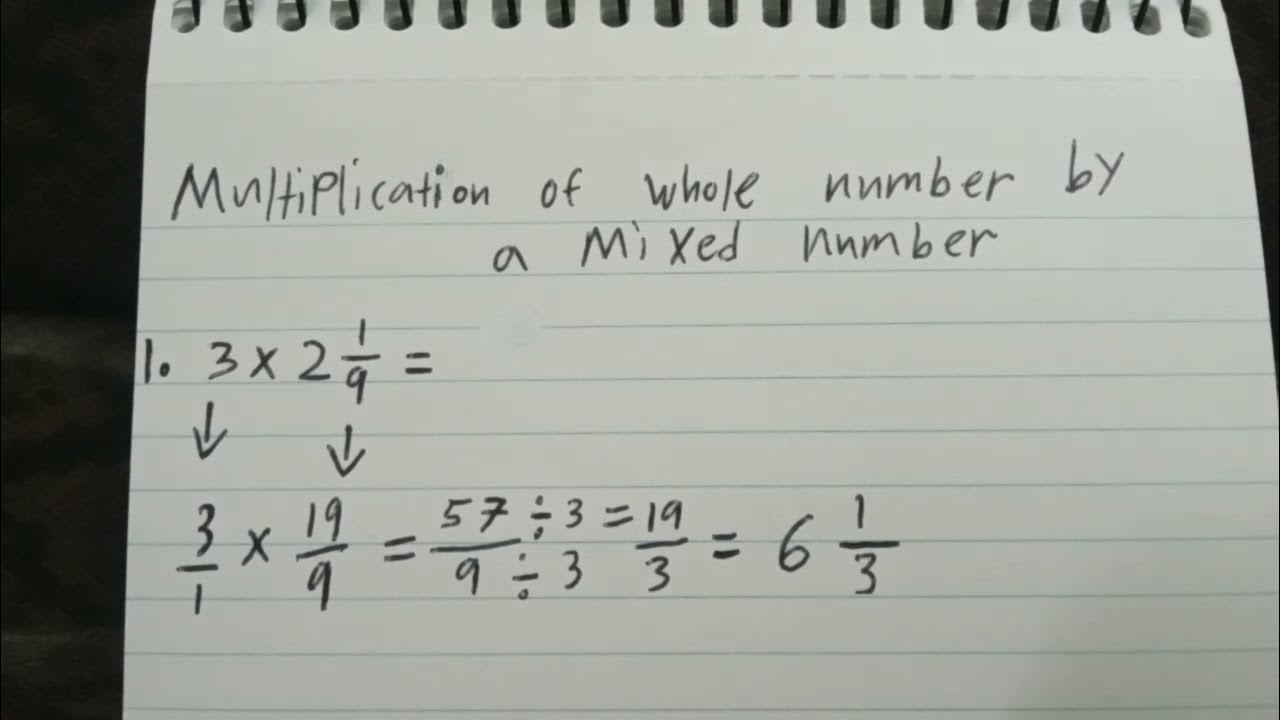 Multiplication of whole number by
a Mixed number
1. 3 x 2 1/9 =
↓ ↓
3/1 x 19/9 = 57/9 ÷ 3/÷ 3 = 19/3 = 6 1/3